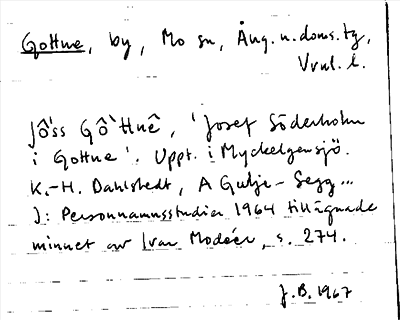 Gottne, by, Mo sn, Ång. n. doms. tg,
Vrnl. l.
Jô'ss Gô`ttnê, 'Josef Söderholm
i Gottne'. Uppt. i Myckelgensjö.
K.-H. Dahlstedt, A Gulje- Segg...
I: Personnamnsstudier 1964 tillägnade
minnet av Ivar Modéer, s. 274.
J.B. 1967